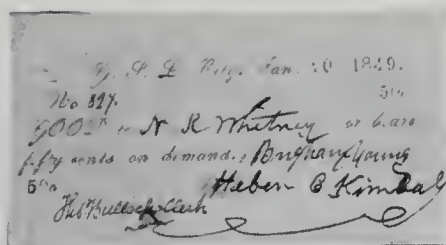 G. S. L. City. Jan. 20 1849.
No 
GOOD to N K Whitney or bearer
fifty cents on demand. Brigham Young
Heber C Kimball
Thos Bullock Clerk